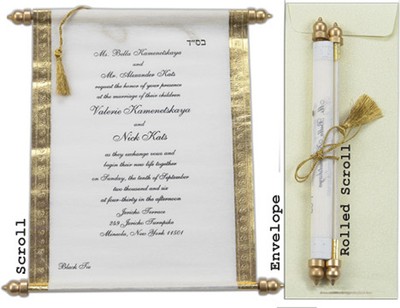 בס״ד
Ms. Bella Kamenetskaya
and
Mr. Alexander Kats
request the honor of your presence
at the marriage of their children
Valerie Kamenetskaya
and
Nick Kats
as they exchange vows and
begin their new life together
on Sunday, the tenth of September
two thousand and six
at four-thirty in the afternoon
Jericho Terrace
249 Jericho Turnpike
Mineola, New York 11501
Black Tie
Scroll
Envelope
Rolled Scroll